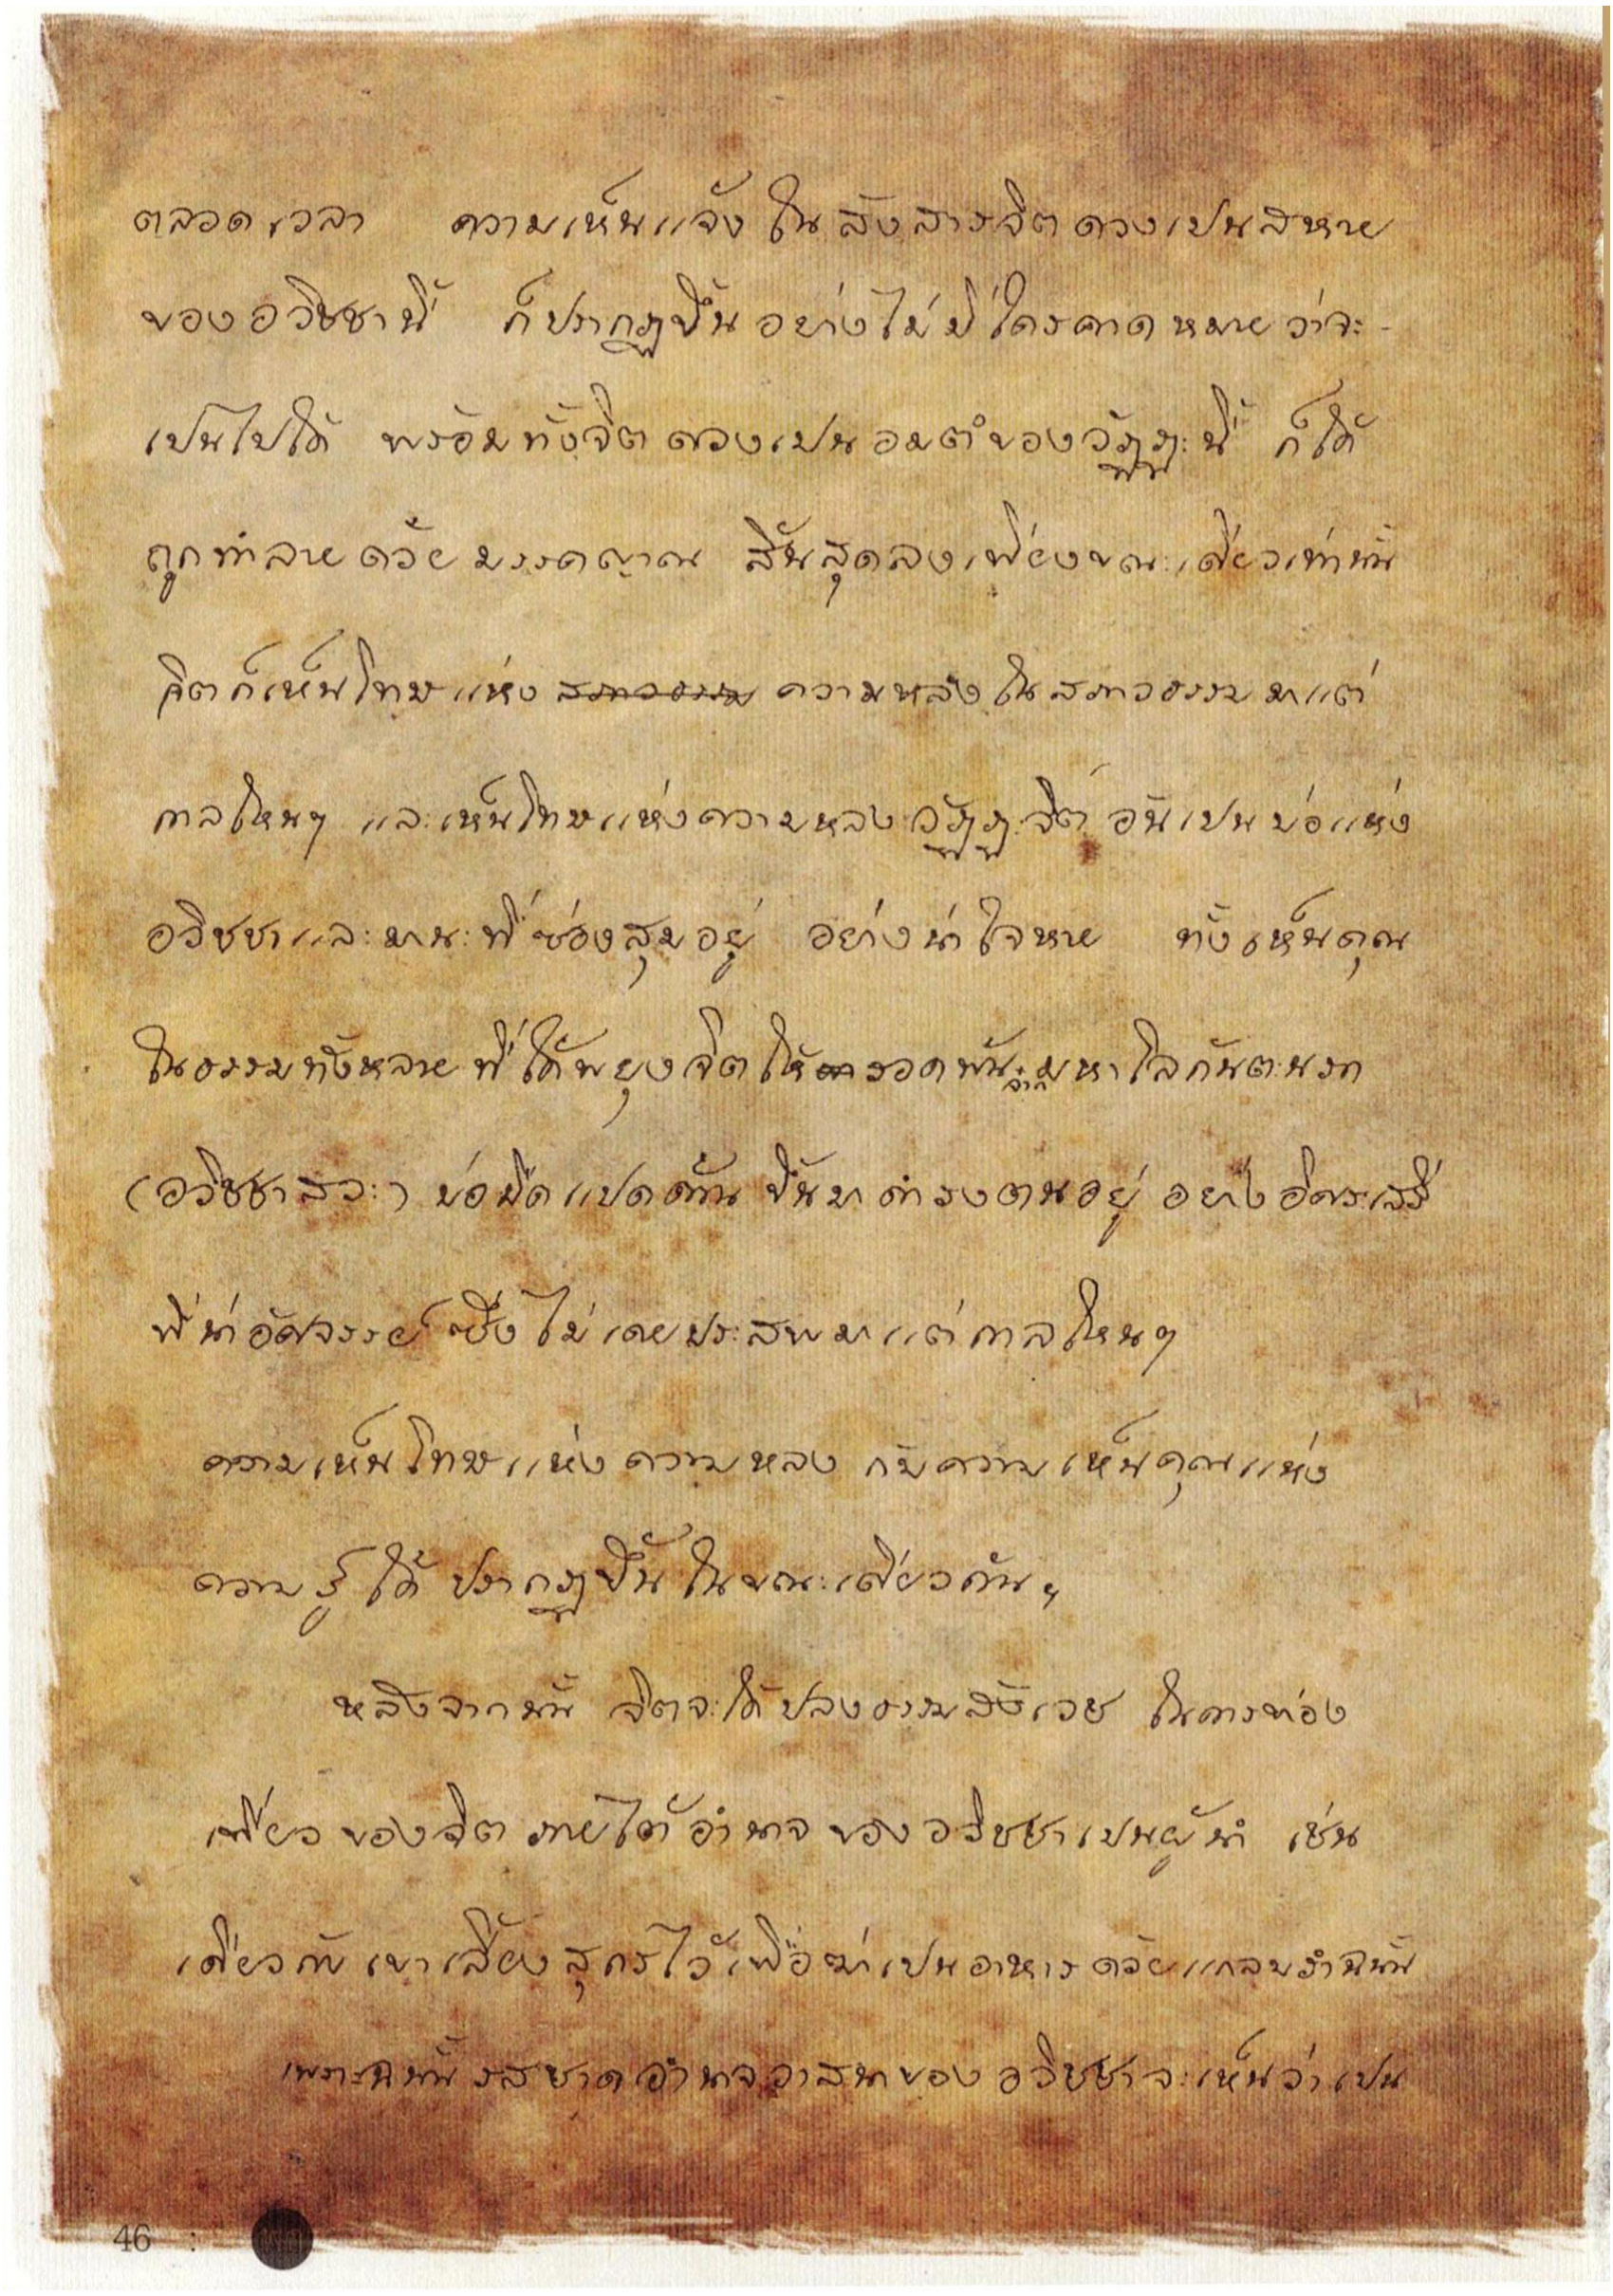 ตลอดเวลา ความเห็นแจ้งในสังสารจิตดวงเปนสหาย
ของอวิชชานี้ ก็ปรากฏขึ้นอย่างไม่มีใครคาดหมายว่าจะ
เป็นไปได้ พร้อมทั้งจิตดวงเปนอมตํของวัฏฏะนี้ ก็ได้
ถูกทำลายด้วยมรรคญาณ สิ้นสุดลงเพียงขณะเดียวเท่านั้น
จิตก็เห็นโทษแห่ง สภาวธรรม ความหลงในสภาวธรรมมาแต่
กาลไหนๆ และเห็นโทษแห่งความหลงวัฏฏะจิต อันเปนบ่อแห่ง
อวิชชาและมานะที่ซ่องสุมอยู่ อย่างน่าใจหาย ทั้งเห็นคุณ
ในธรรมทั้งหลายที่ได้พยุงจิตให้รอดพ้นจากมหาโลกันตะนรก
(อวิชชาสวะ) บ่อมืดแปดด้าน ขึ้นมาดำรงตนอยู่ อย่างอิศระเสรี
ที่น่าอัศจรรย์ ซึ่งไม่เคยประสพมาแต่กาลไหนๆ
ความเห็นโทษแห่งความหลง กับความเห็นคุณแห่ง
ความรู้ ได้ปรากฏขึ้นในขณะเดียวกันฯ
หลังจากนั้น จิตจะได้ปลงธรรมสังเวช ในการท่อง
เที่ยวของจิต ภายใต้อำนาจของอวิชชาเปนผู้นำ เช่น
เดียวกับเขาเลี้ยงสุกรไว้เพื่อฆ่าเปนอาหารด้วยแกลบรำฉนั้น
เพราะฉนั้นรสชาดอำนาจวาสนาของอวิชชาจะเห็นว่าเปน
46 :